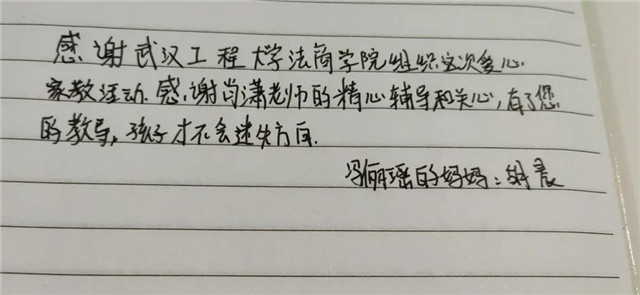 感谢武汉工程大学法商学院组织这次爱心
家教活动.感谢尚潇老师的精心辅导和关心,有了您
的教导,孩子才不会迷失方向.
冯俪瑶的妈妈:胡晨